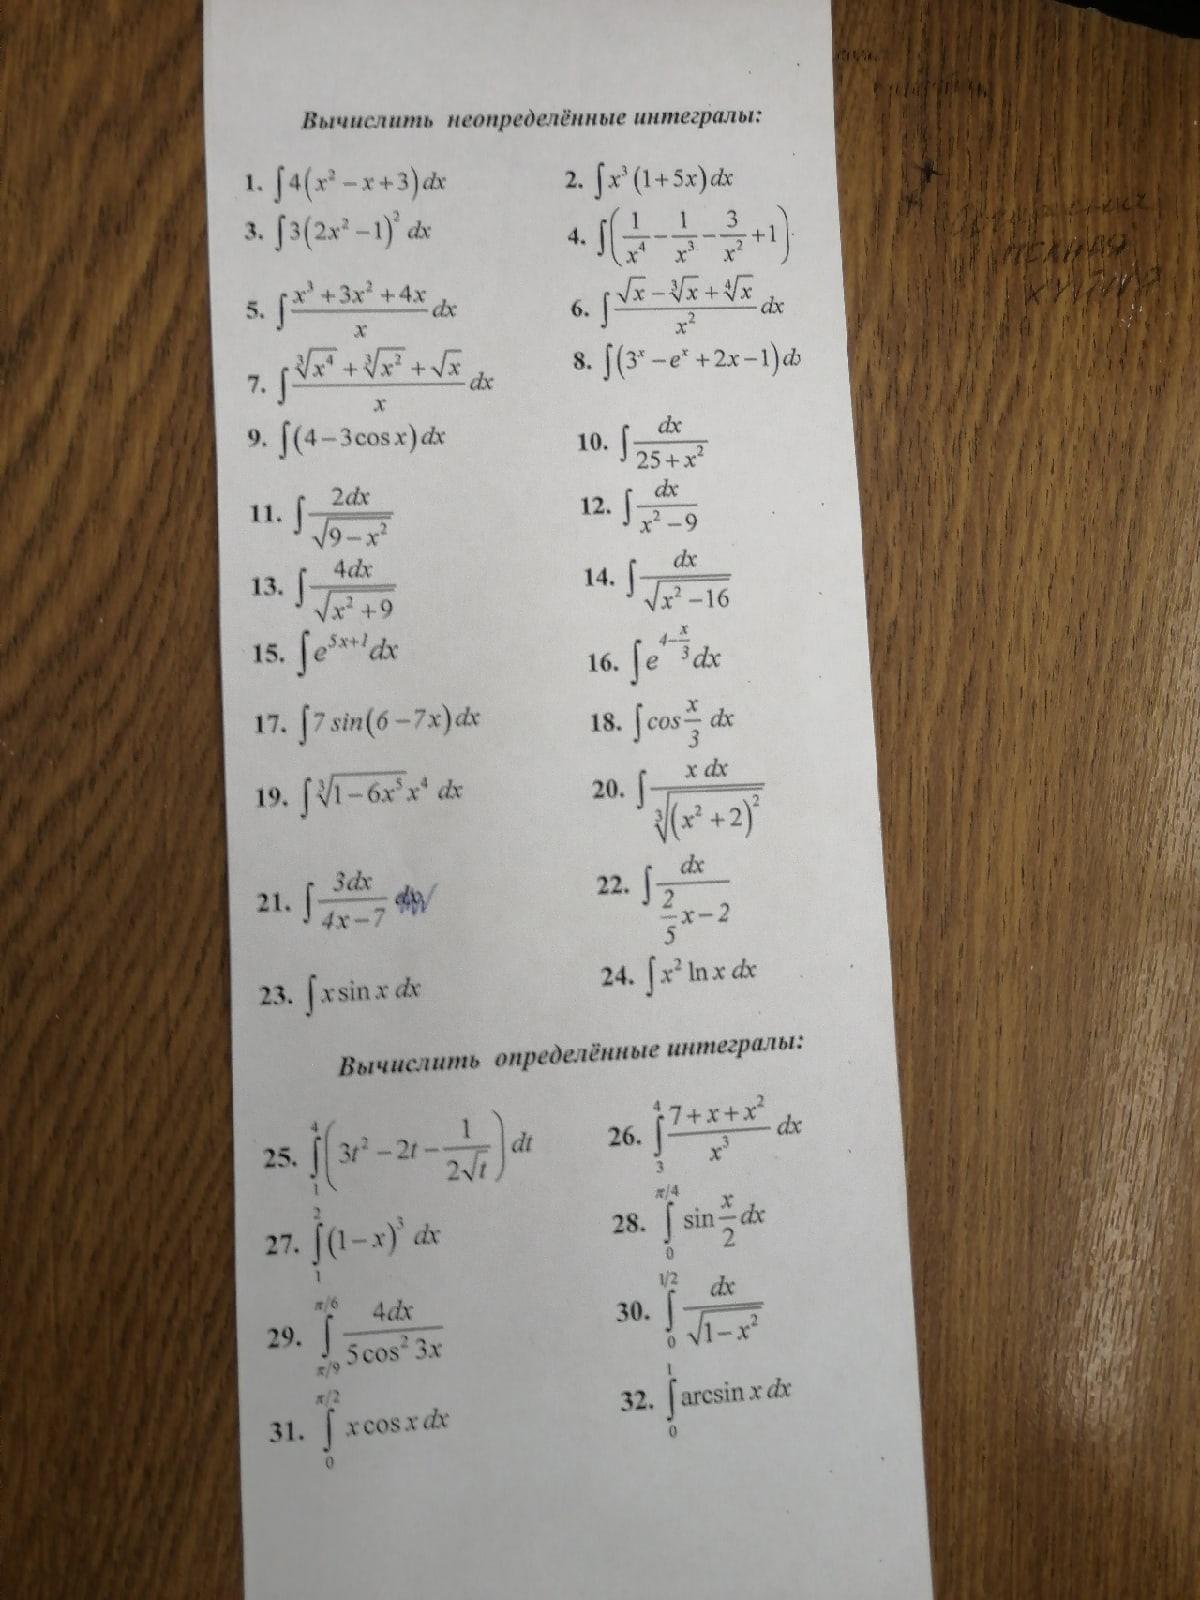 Вычислить неопределённые интегралы:
1. ∫4(x² − x + 3)dx 2. ∫x³(1 + 5x)dx
3. ∫3(2x² − 1)² dx 4. ∫(1/x⁴ − 1/x³ − 3/x² + 1)
5. ∫(x³ + 3x² + 4x)/x dx 6. ∫(√x − ∛x + ∜x)/x² dx
7. ∫(∛x⁴ + ∛x² + √x)/x dx 8. ∫(3ˣ − eˣ + 2x − 1)d
9. ∫(4 − 3cos x)dx 10. ∫dx/(25 + x²)
11. ∫2dx/√(9 − x²) 12. ∫dx/(x² − 9)
13. ∫4dx/√(x² + 9) 14. ∫dx/√(x² − 16)
15. ∫e^(5x+1) dx 16. ∫e^(4−x/3) dx
17. ∫7 sin(6 − 7x)dx 18. ∫cos x/3 dx
19. ∫∛(1 − 6x⁵) x⁴ dx 20. ∫x dx/∛((x² + 2)²)
21. ∫3dx/(4x − 7) 22. ∫dx/(2/5 x − 2)
23. ∫x sin x dx 24. ∫x² ln x dx
Вычислить определённые интегралы:
25. ∫₁⁴(3t² − 2t − 1/(2√t))dt 26. ∫₃⁴(7 + x + x²)/x³ dx
27. ∫₁²(1 − x)³ dx 28. ∫₀^(π/4) sin x/2 dx
29. ∫_(π/9)^(π/6) 4dx/(5cos² 3x) 30. ∫₀^(1/2) dx/√(1 − x²)
31. ∫₀^(π/2) x cos x dx 32. ∫₀¹ arcsin x dx